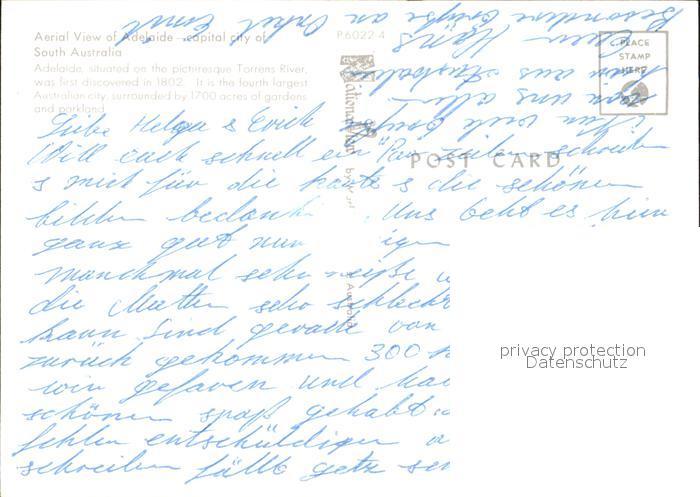 Aerial View of Adelaide – capital city of
South Australia
Adelaide, situated on the picturesque Torrens River,
was first discovered in 1802. It is the fourth largest
Australian city, surrounded by 1700 acres of gardens
and parkland.
P.6022-4
PLACE
STAMP
HERE
POST CARD
National View
Australia
Liebe Helga & Erich
Will euch schnell ein Par zeilen schreiben
& mich für die karte & die schönen
bilder bedank Uns geht es hier
ganz gut nur igen
manchmal sehr heiße
die Mutter sehr schlecht
kann Sind gerade von
zurück gekommen 300 k
wir gefaren und ha
schönen spaß gehabt
fehler entschüldigen
schreiben fällt getz se
Besondere Grüße an Onkel Ernst
Euer Hans
aus
von uns allen
privacy protection
Datenschutz